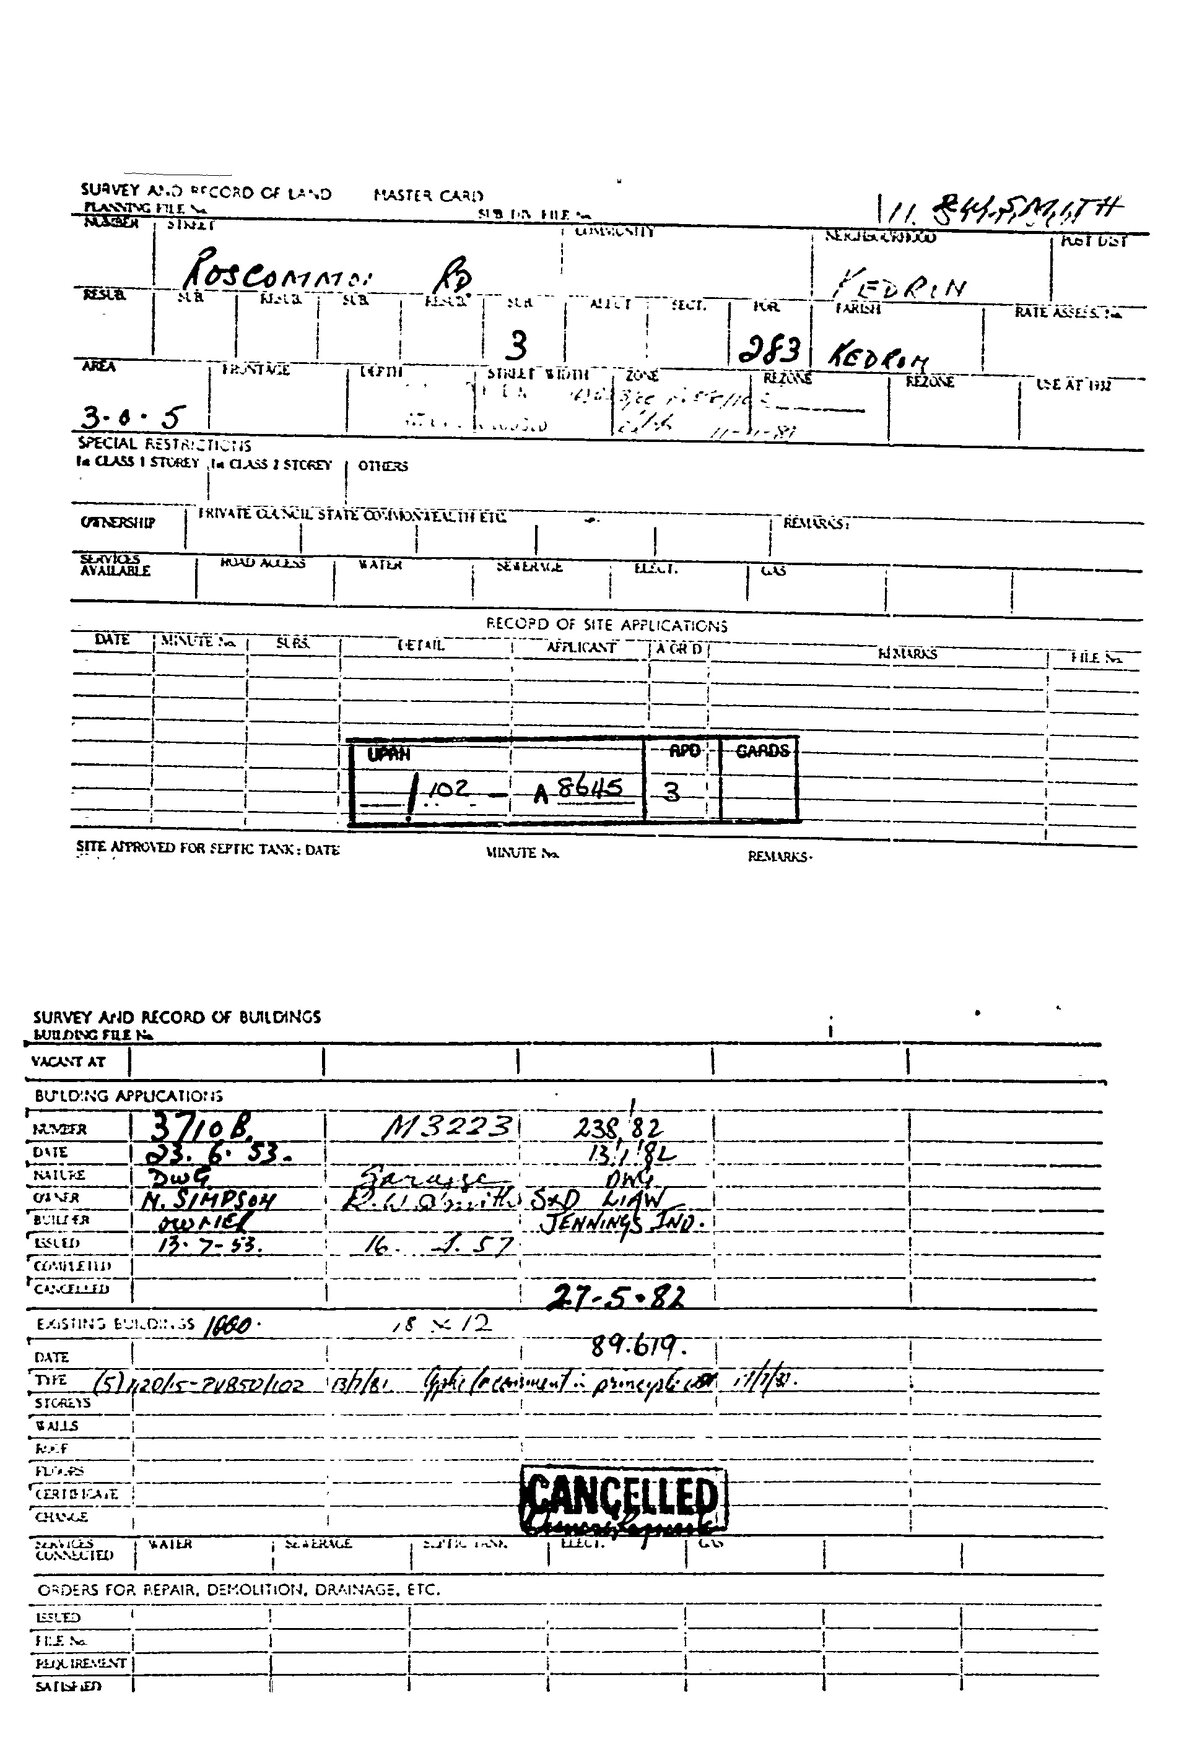 SURVEY AND RECORD OF LAND MASTER CARD
PLANNING FILE No. SUB DIV. FILE No. SMITH
NUMBER STREET COMMUNITY NEIGHBOURHOOD POST DIST
RD KEDRON
RESUB. SUB. RESUB. SUB. RESUB. SUB ALLOT SECT. POR. PARISH RATE ASSESS. No.
3 283 KEDRON
AREA FRONTAGE DEPTH STREET WIDTH ZONE REZONE REZONE USE AT 1932
3·0·5
SPECIAL RESTRICTIONS
1st CLASS 1 STOREY 1st CLASS 2 STOREY OTHERS
OWNERSHIP PRIVATE COUNCIL STATE COMMONWEALTH ETC. REMARKS:
SERVICES AVAILABLE ROAD ACCESS WATER SEWERAGE ELECT. GAS
RECORD OF SITE APPLICATIONS
DATE MINUTE No. SUBS. DETAIL APPLICANT A OR D REMARKS FILE No.
UPRN RPD CARDS
102 - A 8645 3
SITE APPROVED FOR SEPTIC TANK: DATE MINUTE No. REMARKS·
SURVEY AND RECORD OF BUILDINGS
BUILDING FILE No.
VACANT AT
BUILDING APPLICATIONS
NUMBER 3710B. M3223 238/82
DATE 23. 6. 53. 13/1/82
NATURE DWG. Garage DWG
OWNER N. SIMPSON S&D LIAW
BUILDER OWNER JENNINGS IND.
ISSUED 13-7-53. 16. 57
COMPLETED
CANCELLED 27-5-82
EXISTING BUILDINGS 18 x 12
DATE 89.619.
TYPE 13/7/81 in principle 17/7/81.
STOREYS
WALLS
ROOF
FLOORS
CERTIFICATE CANCELLED
CHANGE
SERVICES CONNECTED WATER SEWERAGE SEPTIC TANK ELECT. GAS
ORDERS FOR REPAIR, DEMOLITION, DRAINAGE, ETC.
ISSUED
FILE No.
REQUIREMENT
SATISFIED